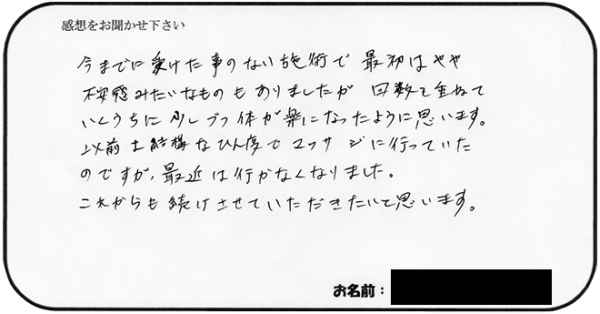 感想をお聞かせ下さい
今までに受けた事のない施術で最初はやや
不安感みたいなものもありましたが回数を重ねて
いくうちに少しづつ体が楽になったように思います。
以前は結構なひん度でマッサージに行っていた
のですが、最近は行かなくなりました。
これからも続けさせていただきたいと思います。
お名前：